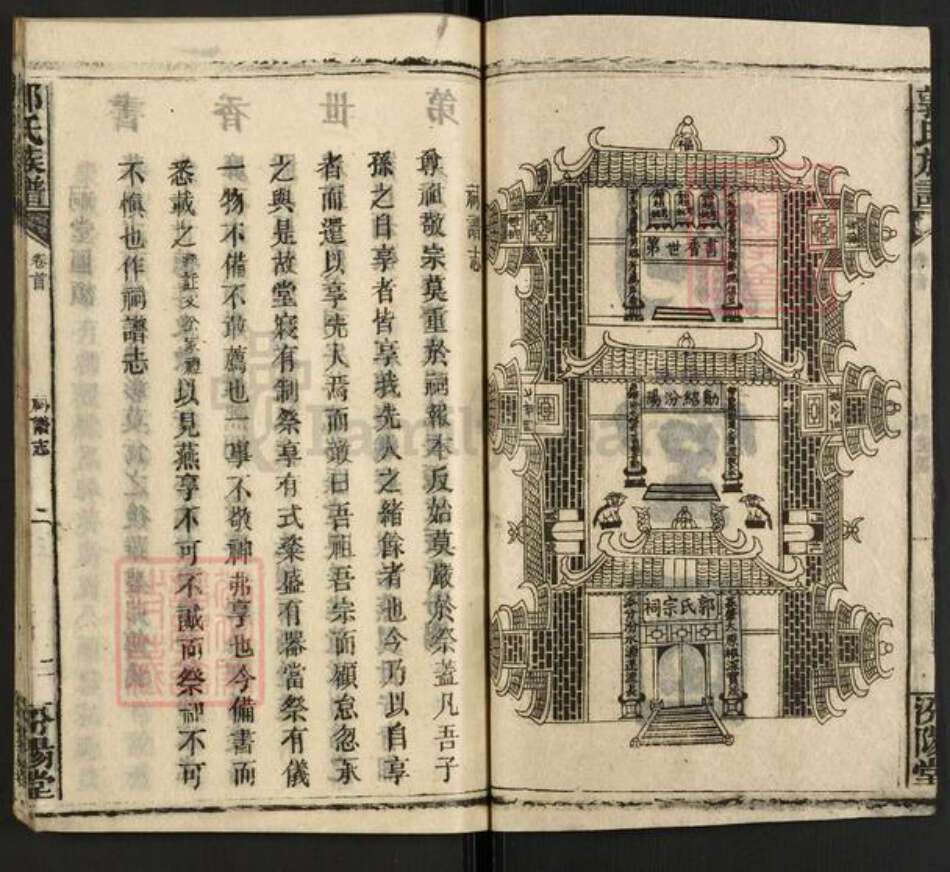 郭氏族譜
汾陽堂
書香世第
勳紹汾陽
郭氏宗祠
祠譜志
尊祖敬宗莫重於祠報本反始莫嚴於祭蓋凡吾子
孫之自享者皆享我先人之緒餘者也今乃以自享
者而還以享先人焉而敢曰吾祖吾宗而顧怠忽承
之與是故堂寢有制祭享有式粢盛有器當祭有儀
一物不備不敢薦也一事不敬神弗享也今備書而
悉載之以見燕享不可不誠而祭祀不可
不慎也作祠譜志
郭氏族譜
卷首
祠譜志
二
汾陽堂